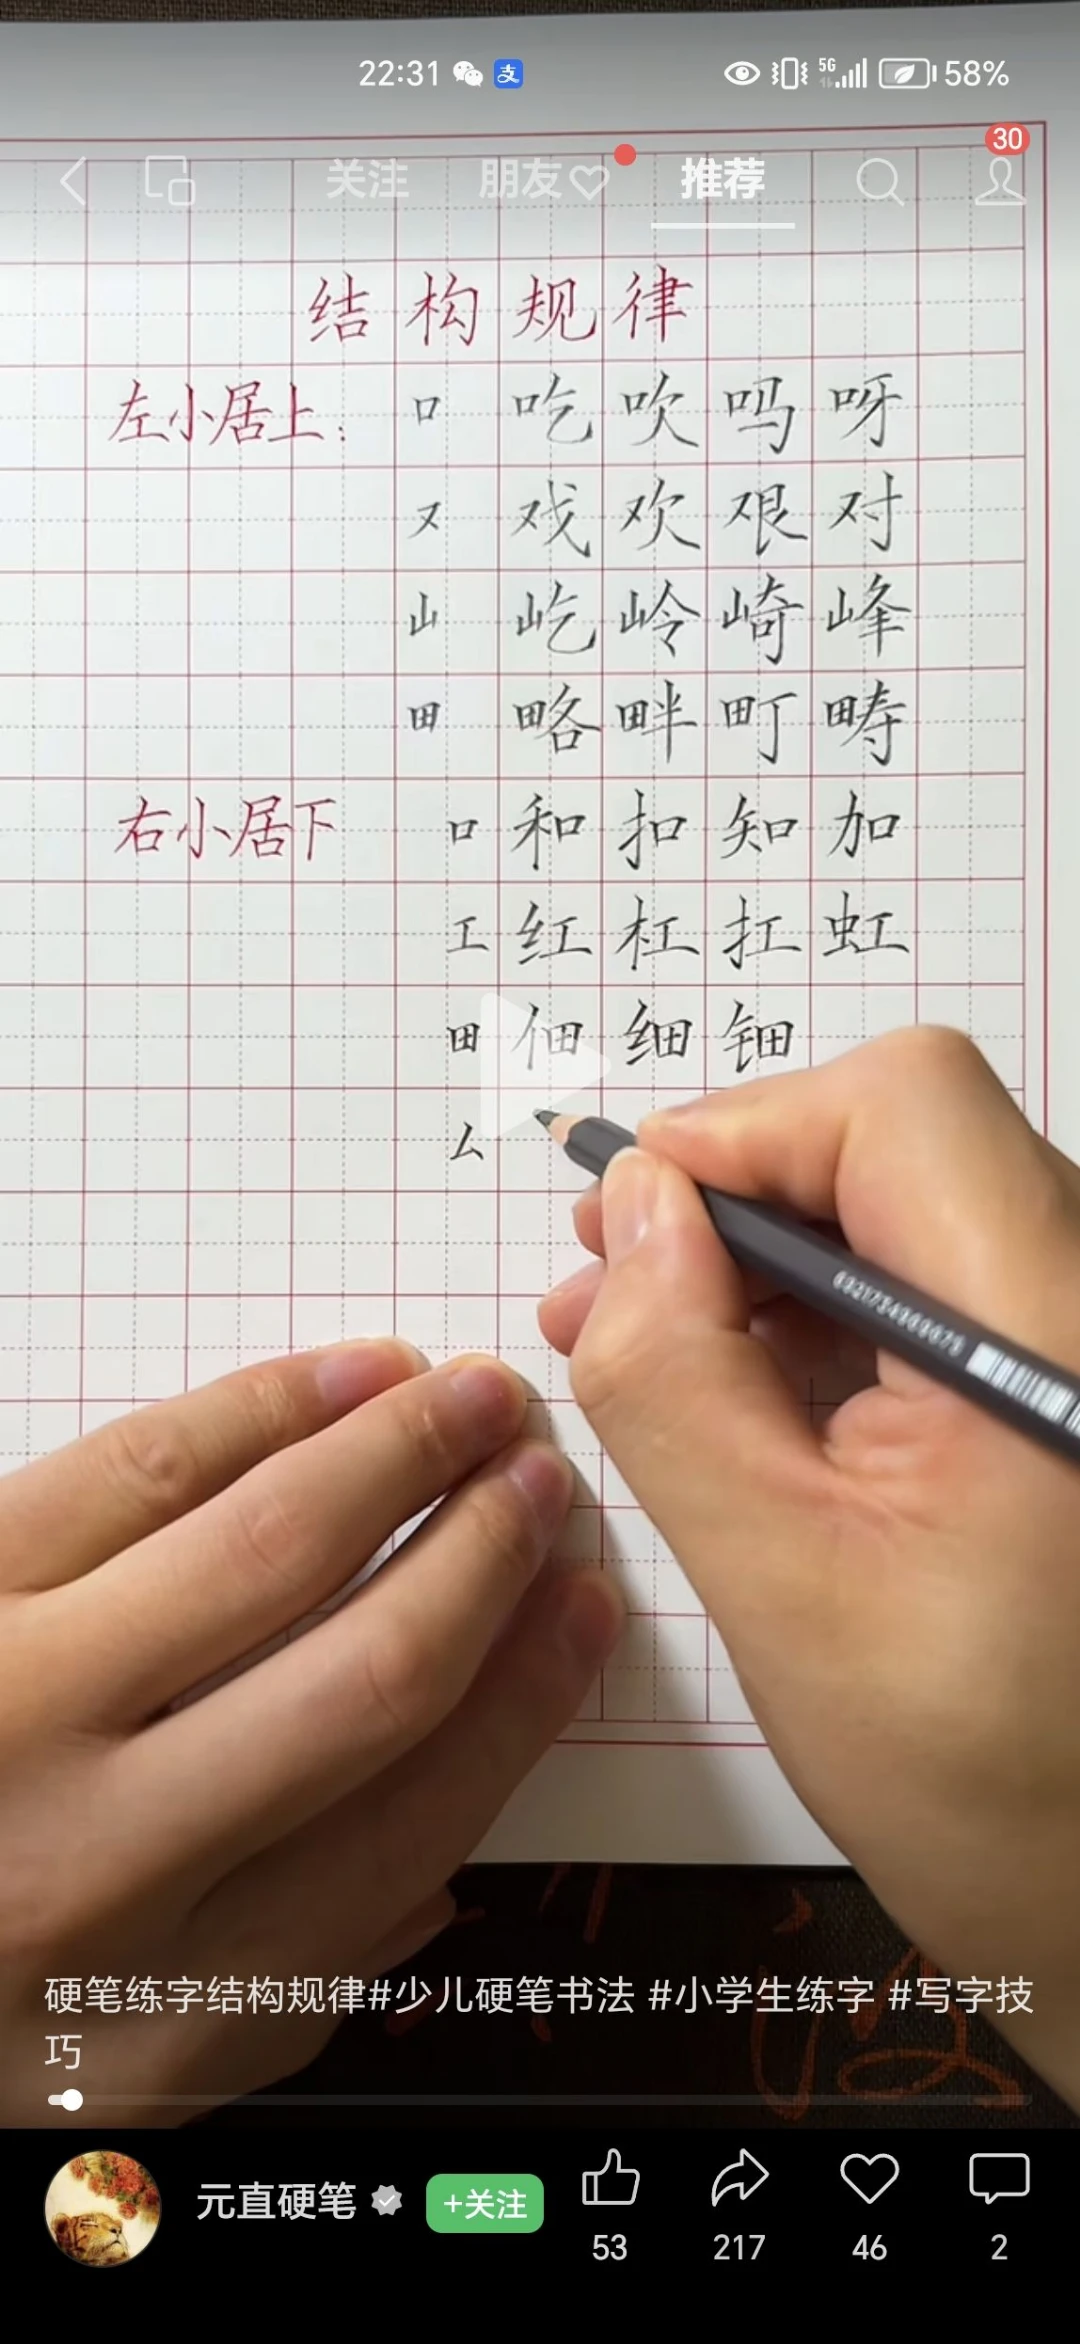 22:31 支 5G 58%
关注 朋友 推荐 30
结构规律
左小居上: 口 吃 吹 吗 呀
又 戏 欢 艰 对
山 屹 岭 崎 峰
田 略 畔 町 畴
右小居下 口 和 扣 知 加
工 红 杠 扛 虹
田 佃 细 钿
厶
硬笔练字结构规律#少儿硬笔书法 #小学生练字 #写字技
巧
元直硬笔 +关注 53 217 46 2